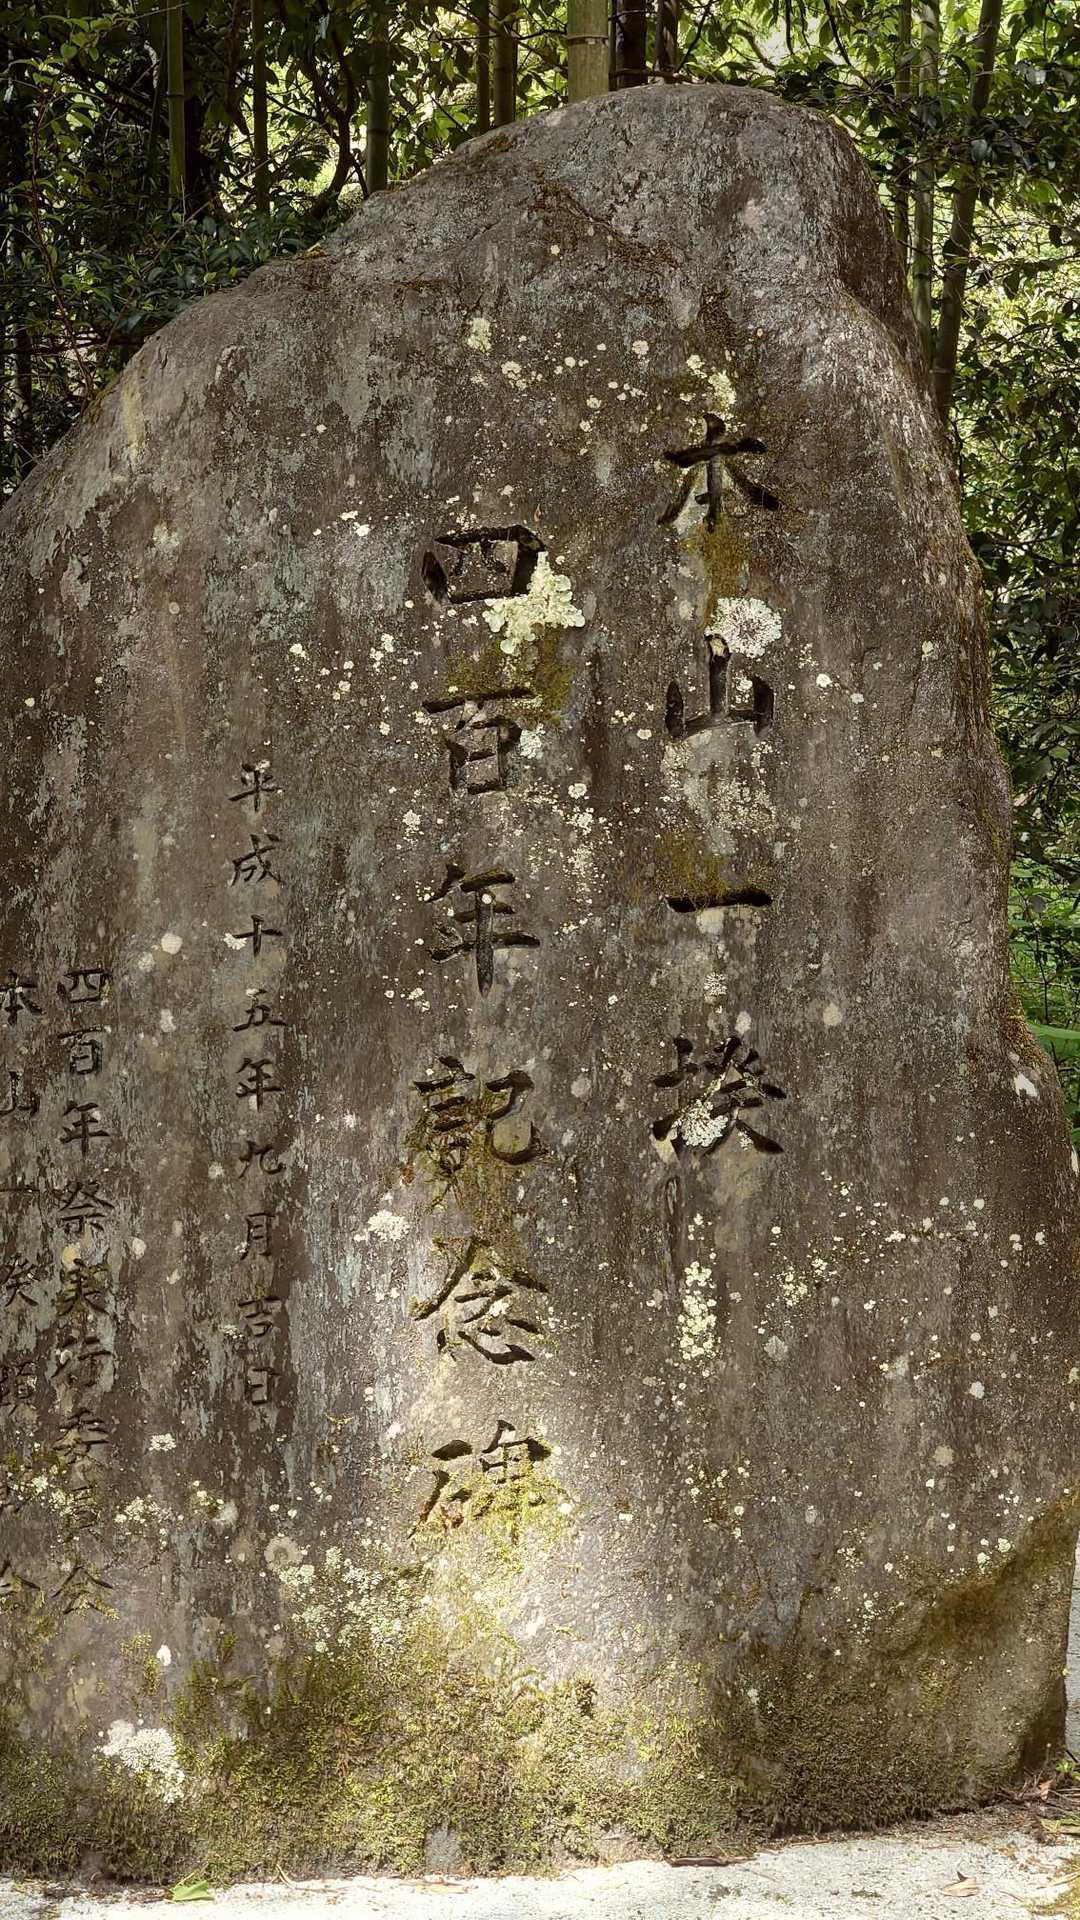 本山一揆
四百年記念碑
平成十五年九月吉日
四百年祭実行委員会
本山一揆顕彰会